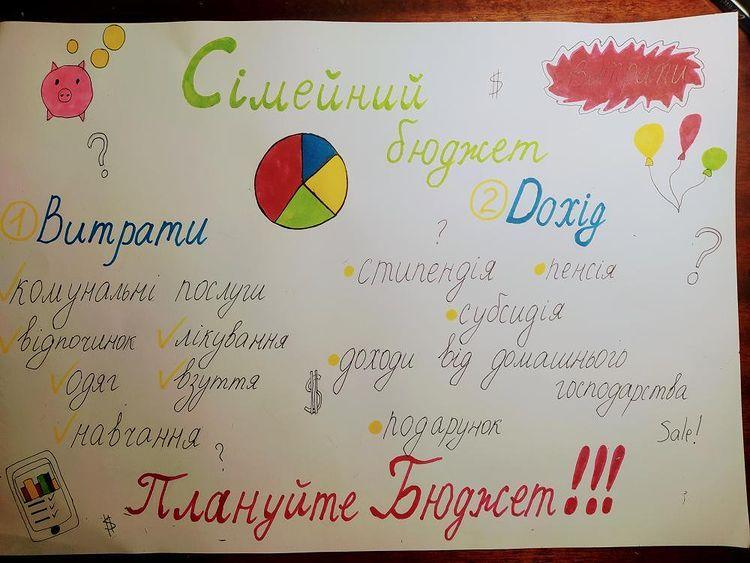 Сімейний
бюджет
Витрати
$
?
1 Витрати
2 Дохід
?
?
комунальні послуги
відпочинок
лікування
одяг
взуття
навчання
стипендія
пенсія
субсидія
доходи від домашнього
господарства
подарунок
$
Sale!
?
$
Плануйте Бюджет!!!